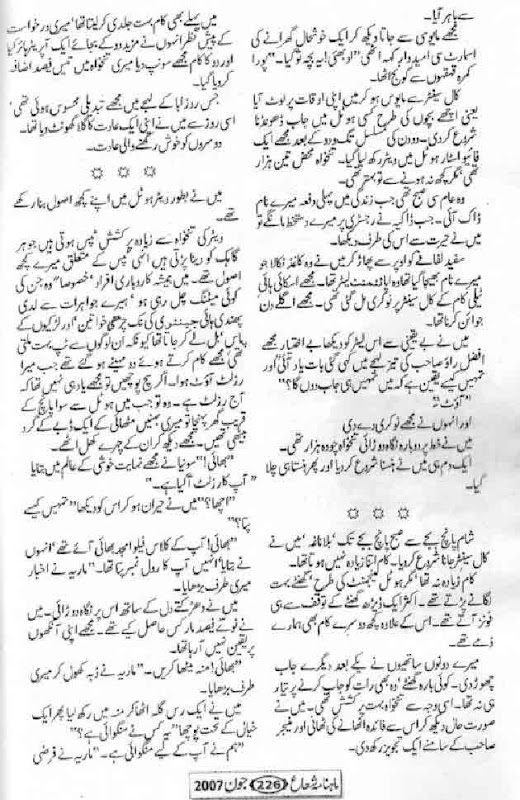 سے باہر آیا۔
مجھے مایوسی سے جاتا دیکھ کر ایک خوشحال گھرانے کی
اسمارٹ سی امیدوار کہہ اٹھی "او بھئی! یہ بچہ تو گیا۔" پورا
کمرہ قہقہوں سے گونج اٹھا۔
کال سینٹر سے مایوس ہو کر میں اپنی اوقات پر لوٹ آیا
یعنی اچھے بچوں کی طرح کسی ہوٹل میں جاب ڈھونڈنا
شروع کر دی۔ دو دن کی مسلسل تگ و دو کے بعد مجھے ایک
فائیو اسٹار ہوٹل میں ویٹر رکھ لیا گیا۔ تنخواہ محض تین ہزار
تھی، مگر کچھ نہ ہونے سے تو بہتر تھی۔
وہ عام سی صبح تھی جب زندگی میں پہلی دفعہ میرے نام
ڈاک آئی۔ جب ڈاکیہ نے رجسٹری پر میرے دستخط مانگے تو
میں نے حیرت سے اس کی طرف دیکھا۔
سفید لفافے کو اوپر سے پھاڑ کر میں نے وہ کاغذ نکالا جو
میرے نام بھیجا گیا تھا وہ اپائنٹمنٹ لیٹر تھا۔ مجھے اسکائی ہائی
ٹیلی کام کے کال سینٹر پر نوکری مل گئی تھی۔ مجھے اگلے دن
جوائن کرنا تھا۔
میں نے بے یقینی سے اس لیٹر کو دیکھا بے اختیار مجھے
افضل راؤ صاحب کی تیز لہجے میں کہی گئی بات یاد آئی "اور
تمہیں کیسے یقین ہے کہ میں تمہیں ہی جاب دوں گا؟"
"آؤٹ"
اور انہوں نے مجھے نوکری دے دی
میں نے خط پر دوبارہ نگاہ دوڑائی تنخواہ چودہ ہزار تھی۔
ایک دم ہی میں نے ہنسنا شروع کر دیا اور پھر ہنستا ہی چلا
گیا۔
☼ ☼ ☼
شام پانچ بجے سے صبح پانچ بجے تک بلا ناغہ میں نے
کال سینٹر جانا شروع کر دیا۔ کام اتنا زیادہ نہیں ہوتا تھا۔
کام زیادہ نہ تھا، مگر ہوٹل مینجمنٹ کی طرح گھنٹے بہت
لگانے پڑتے تھے۔ اکثر ایک ڈیڑھ گھنٹے کے توقف سے ہی
فونز آتے تھے۔ اس کے علاوہ کچھ دوسرے کام بھی ہمارے
ذمے تھے۔
میرے دونوں ساتھیوں نے یکے بعد دیگرے جاب
چھوڑ دی۔ کوئی بارہ گھنٹے، وہ بھی رات کو جاب کرنے پر تیار
نہ تھا۔ اسی وجہ سے تنخواہ بہت پرکشش تھی۔ میں نے
صورت حال دیکھ کر اس سے فائدہ اٹھانے کی ٹھانی اور منیجر
صاحب کے سامنے ایک تجویز رکھ دی۔
میں پہلے بھی کام بہت جلدی کر لیتا تھا، میری درخواست
کے پیش نظر انہوں نے مزید دو کے بجائے ایک آپریٹر ہائر کیا
اور دو کا کام مجھے سونپ دیا میری تنخواہ میں تیس فیصد اضافہ
کر دیا گیا۔
جس روز ابا کے لہجے میں مجھے تبدیلی محسوس ہوئی تھی،
اسی روز سے میں نے اپنی ایک عادت کا گلا گھونٹ دیا تھا۔
دوسروں کو خوش رکھنے والی عادت۔
☼ ☼ ☼
میں نے بطور ویٹر ہوٹل میں اپنے کچھ اصول بنا رکھے
تھے۔
ویٹر کی تنخواہ سے زیادہ پرکشش ٹپس ہوتی ہیں جو ہر
گاہک کو دینا پڑتی ہیں۔ انہی ٹپس کے متعلق میرے کچھ
اصول تھے۔ میں ہمیشہ کاروباری افراد، خصوصاً" وہ جن کی
کوئی میٹنگ چل رہی ہو، ہیرے جواہرات سے لدی
پھندی ہائی جینٹری کی تک چڑھی خواتین" اور لڑکیوں کے
پاس بل لے کر جاتا تھا کیونکہ ان لوگوں سے ٹپ بہت ملتی
تھی، مجھے کام کرتے ہوئے دو مہینے ہو گئے تھے جب میرا
رزلٹ آؤٹ ہوا۔ اگر سچ پوچھیں تو مجھے یاد ہی نہیں تھا کہ
آج رزلٹ ہے۔ وہ تو جب میں ہوٹل سے سوا پانچ کے
قریب گھر پہنچا تو میری بہنیں مٹھائی کے ایک ڈبے کے گرد
بیٹھی تھیں۔ مجھے دیکھ کر ان کے چہرے کھل اٹھے۔
"بھائی!" سونیا نے مجھے نہایت خوشی کے عالم میں بتایا
"آپ کا رزلٹ آ گیا ہے۔"
"اچھا؟" میں نے حیران ہو کر اس کو دیکھا "تمہیں کیسے
پتا؟"
"بھائی! آپ کے کلاس فیلو امجد بھائی آئے تھے، انہوں
نے بتایا، انہیں آپ کا رول نمبر پتا تھا۔" ماریہ نے اخبار
میری طرف بڑھایا۔
میں نے دھڑکتے دل کے ساتھ اس پر نگاہ دوڑائی۔ میں
نے نوے فیصد مارکس حاصل کیے تھے۔ مجھے اپنی آنکھوں
پر یقین نہیں آ رہا تھا۔
"بھائی! منہ میٹھا کریں۔" ماریہ نے ڈبہ کھول کر میری
طرف بڑھایا۔
میں نے ایک رس گلہ اٹھا کر منہ میں رکھ لیا پھر ایک
خیال کے تحت پوچھا "یہ کس نے منگوائی ہے؟"
"ہم نے آپ کے لیے منگوائی ہے۔" ماریہ نے فرضی
ماہنامہ شعاع 226 جون 2007